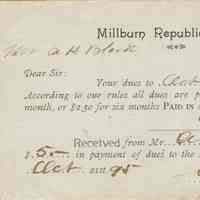 Millburn Republic
A H Black
Dear Sir:
Your dues to Oct
According to our rules all dues are p
month, or $2.50 for six months PAID IN
Received from Mr.
$ 5.00 in payment of dues to the
Oct 1st 95